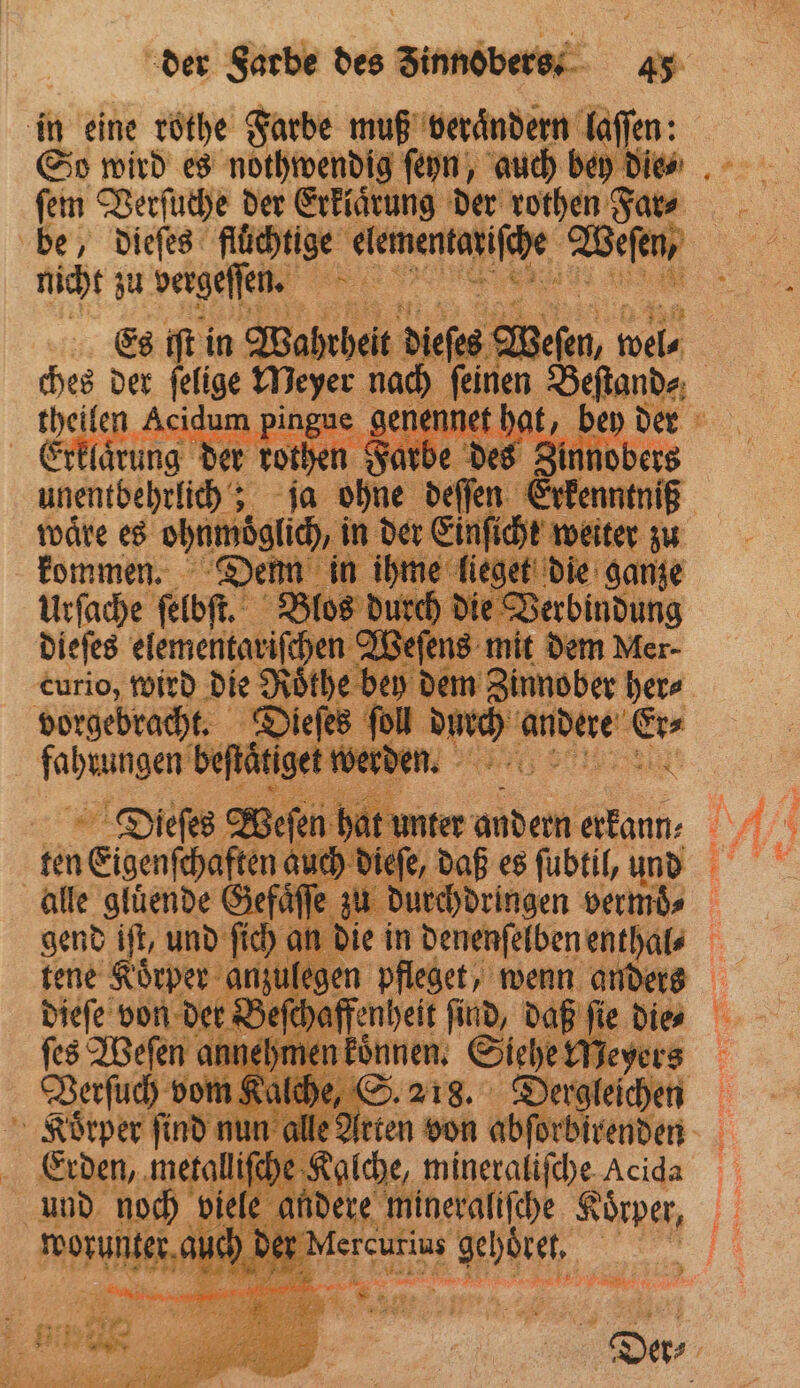 der Farbe des Zinnobers. 45
in eine rothe Farbe muß veraͤndern laſſen:
So wird es nothwendig ſeyn, auch bey die⸗
ſem Verſuche der Erklaͤrung der rothen Far⸗
be, dieſes fluͤchtige elementariſche Weſen,
nicht zu vergeſſen.
Es iſt in Wahrheit dieſes Weſen, wel⸗
ches der ſelige Meyer nach ſeinen Beſtand⸗
theilen Acidum pingue genennet hat, bey der
Erklaͤrung der rothen Farbe des Zinnobers
unentbehrlich; ja ohne deſſen Erkenntniß
waͤre es ohnmoͤglich, in der Einſicht weiter zu
kommen. Denn in ihme lieget die ganze
Urſache ſelbſt. Blos durch die Verbindung
dieſes elementariſchen Weſens mit dem Mer-
curio, wird die Roͤthe bey dem Zinnober her⸗
vorgebracht. Dieſes ſoll durch andere Er⸗
fahrungen beſtaͤtiget werden.
Dieſes Weſen hat unter andern erkann⸗
ten Eigenſchaften auch dieſe, daß es ſubtil, und
alle gluͤende Gefaͤſſe zu durchdringen vermoͤ⸗
gend iſt, und ſich an die in denenſelben enthal⸗
tene Koͤrper anzulegen pfleget, wenn anders
dieſe von der Beſchaffenheit ſind, daß ſie die⸗
ſes Weſen annehmen koͤnnen. Siehe Meyers
Verſuch vom Kalche, S. 218. Dergleichen
Koͤrper ſind nun alle Arten von abſorbirenden
Erden, metalliſche Kalche, mineraliſche Acida
und noch viele andere mineraliſche Koͤrper,
worunter auch der Mercurius gehoͤret.
Der⸗